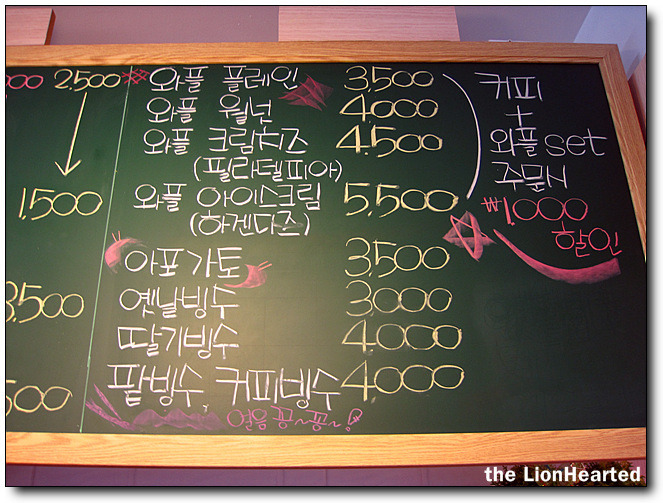 2,500
1,500
3,500
와플 플레인 3,500
와플 월넛 4,000
와플 크림치즈 4,500
(필라델피아)
와플 아이스크림 5,500
(하겐다즈)
아포가토 3,500
옛날빙수 3,000
딸기빙수 4,000
팥빙수, 커피빙수 4,000
얼음 꽁~꽁~!
커피
+
와플 set
주문시
₩1,000
할인
the LionHearted